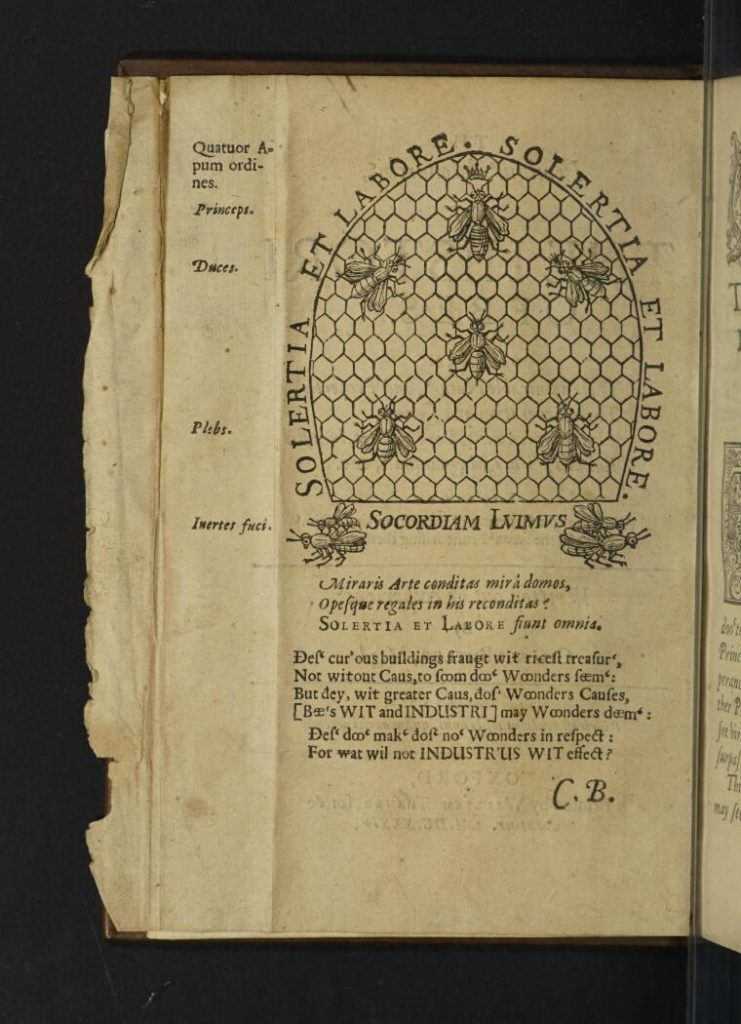 Quatuor A-
pum ordi-
nes.
Princeps.
Duces.
Plebs.
Inertes fuci.
SOLERTIA ET LABORE. SOLERTIA ET LABORE.
SOCORDIAM LVIMVS
Miraris Arte conditas mirâ domos,
Opeſque regales in his reconditas?
SOLERTIA ET LABORE fiunt omnia.
Ðeſ' cur'ous buildings fraugt wit riceſt treaſur',
Not witout Caus, to ſoom doo' Woonders ſeem':
But ðey, wit greater Caus, ðoſ' Woonders Cauſes,
[Bee's WIT and INDUSTRI] may Woonders deem':
Ðeſ' doo' mak' ðoſ' no' Woonders in reſpect:
For wat wil not INDUSTR'US WIT effect?
C. B.